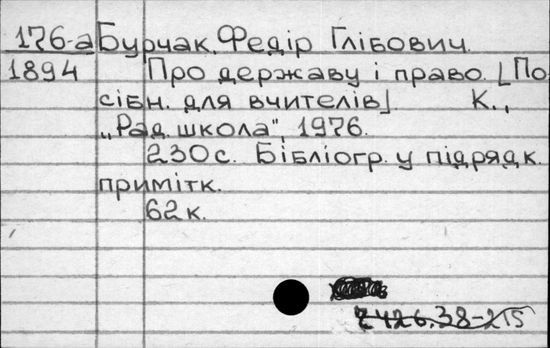 176-а Бурчак, Федір Глібович.
1894 Про державу і право. [По-
сібн. для вчителів]. К.,
„Рад. школа", 1976.
230с. Бібліогр. у підрядк.
примітк.
62к.